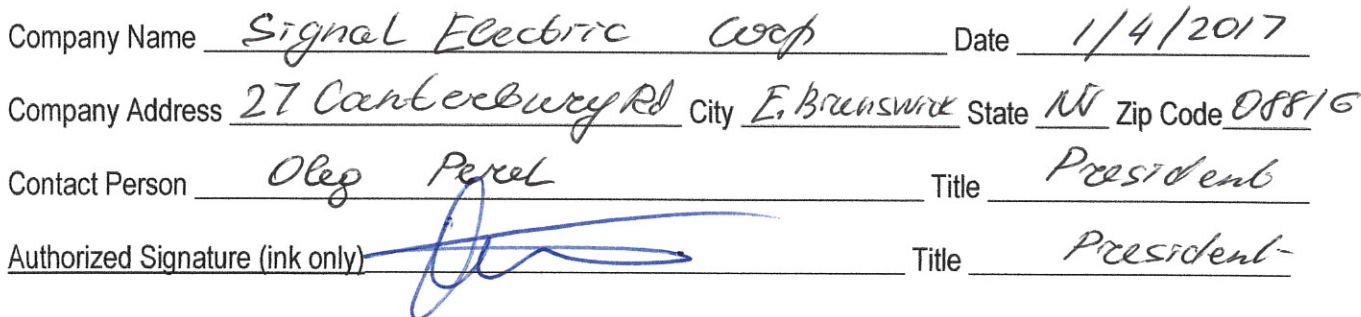 Company Name Signal Electric Corp Date 1/4/2017
Company Address 27 Canterbury Rd City E. Brunswick State NJ Zip Code 08816
Contact Person Oleg Perel Title President
Authorized Signature (ink only) Title President